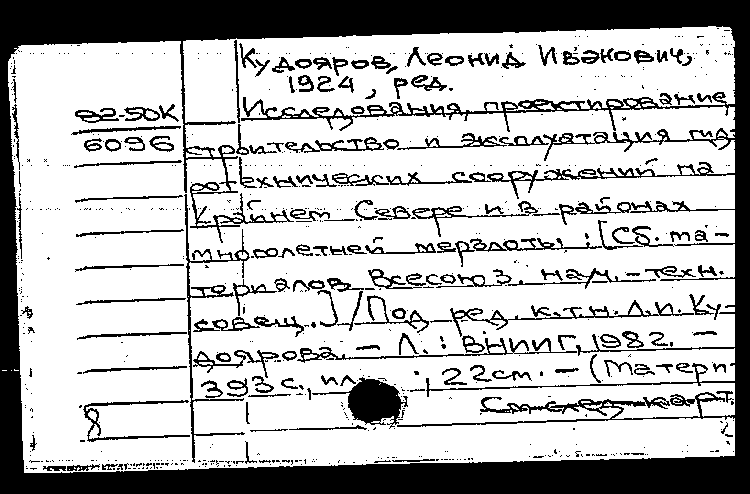 Кудояров, Леонид Иванович,
1924, ред.
82-50К
6096
Исследования, проектирование,
строительство и эксплуатация гид-
ротехнических сооружений на
Крайнем Севере и в районах
многолетней мерзлоты : [Сб. ма-
териалов Всесоюз. науч.-техн.
совещ.] / Под ред. к.т.н. Л.И. Ку-
доярова. — Л. : ВНИИГ, 1982. —
393 с., ил. ; 22 см. — (Матери-
См. след. карт.
8